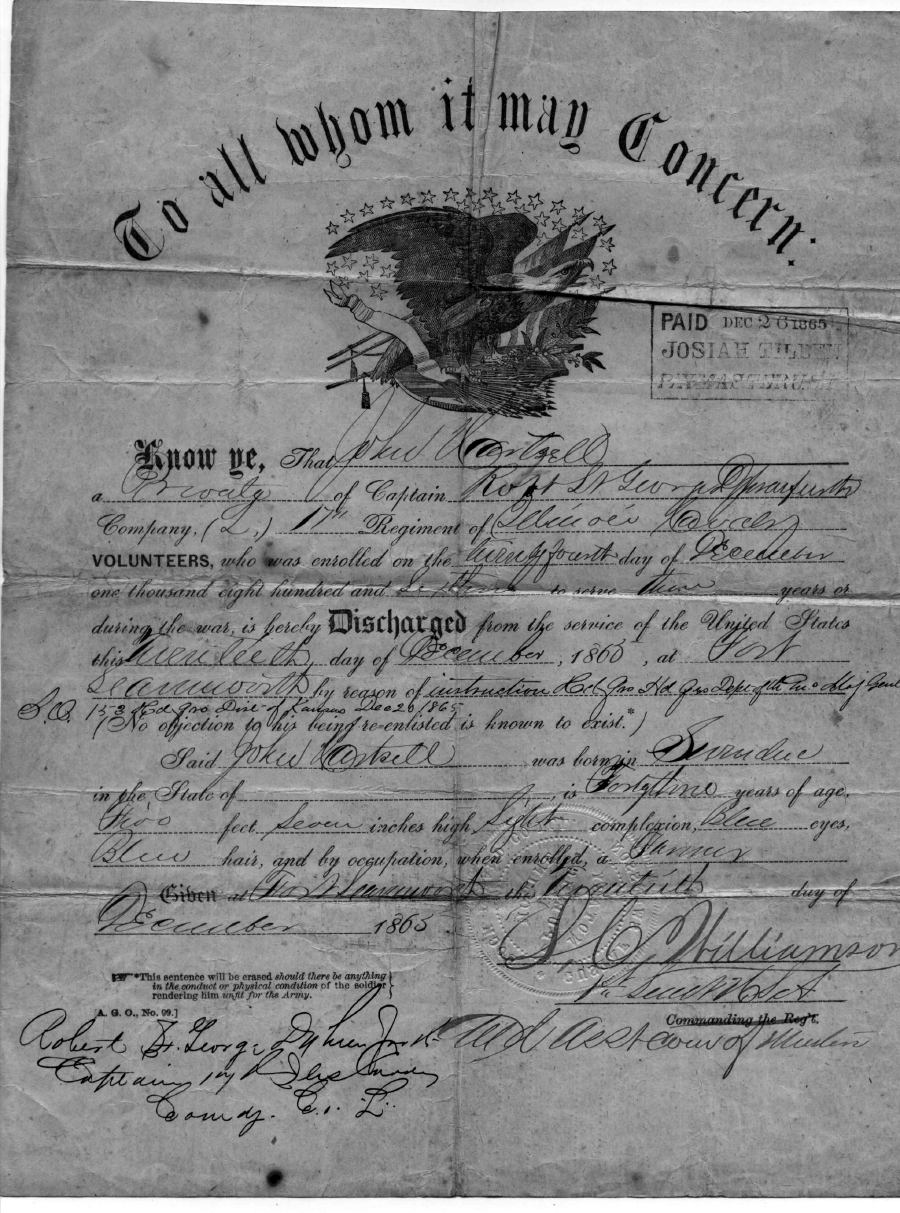 To all whom it may Concern:
PAID DEC 26 1865
JOSIAH
Know ye, That John Hartzell
a Private of Captain Robt St George
Company, (L,) 17th Regiment of Illinois Cavalry
VOLUNTEERS, who was enrolled on the twenty fourth day of December
one thousand eight hundred and to serve years or
during the war, is hereby Discharged from the service of the United States
this day of December, 1865, at Fort
by reason of instruction Hd Qrs Hd Qrs Dept of the Mo Maj Genl
S.O. Hd Qrs Dist of Kansas Dec 20 1865
(No objection to his being re-enlisted is known to exist.*)
Said John Hartzell was born in
in the State of , is years of age,
feet seven inches high, Light complexion, Blue eyes,
hair, and by occupation, when enrolled, a Farmer
Given at Fort this twentieth day of
December 1865.
Williamson
*This sentence will be erased should there be anything
in the conduct or physical condition of the soldier
rendering him unfit for the Army.
[A. G. O., No. 99.]
Commanding the Reg't.
Robert St. George
and Asst Com of Musters
Captain 17th Ills Cavalry
Comdg. Co. L.